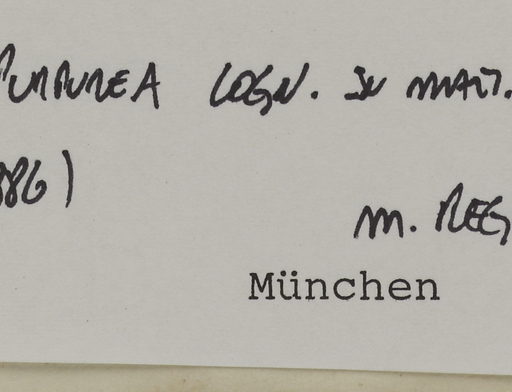 PURPUREA COGN. IN MART.
886)
M. REG
München